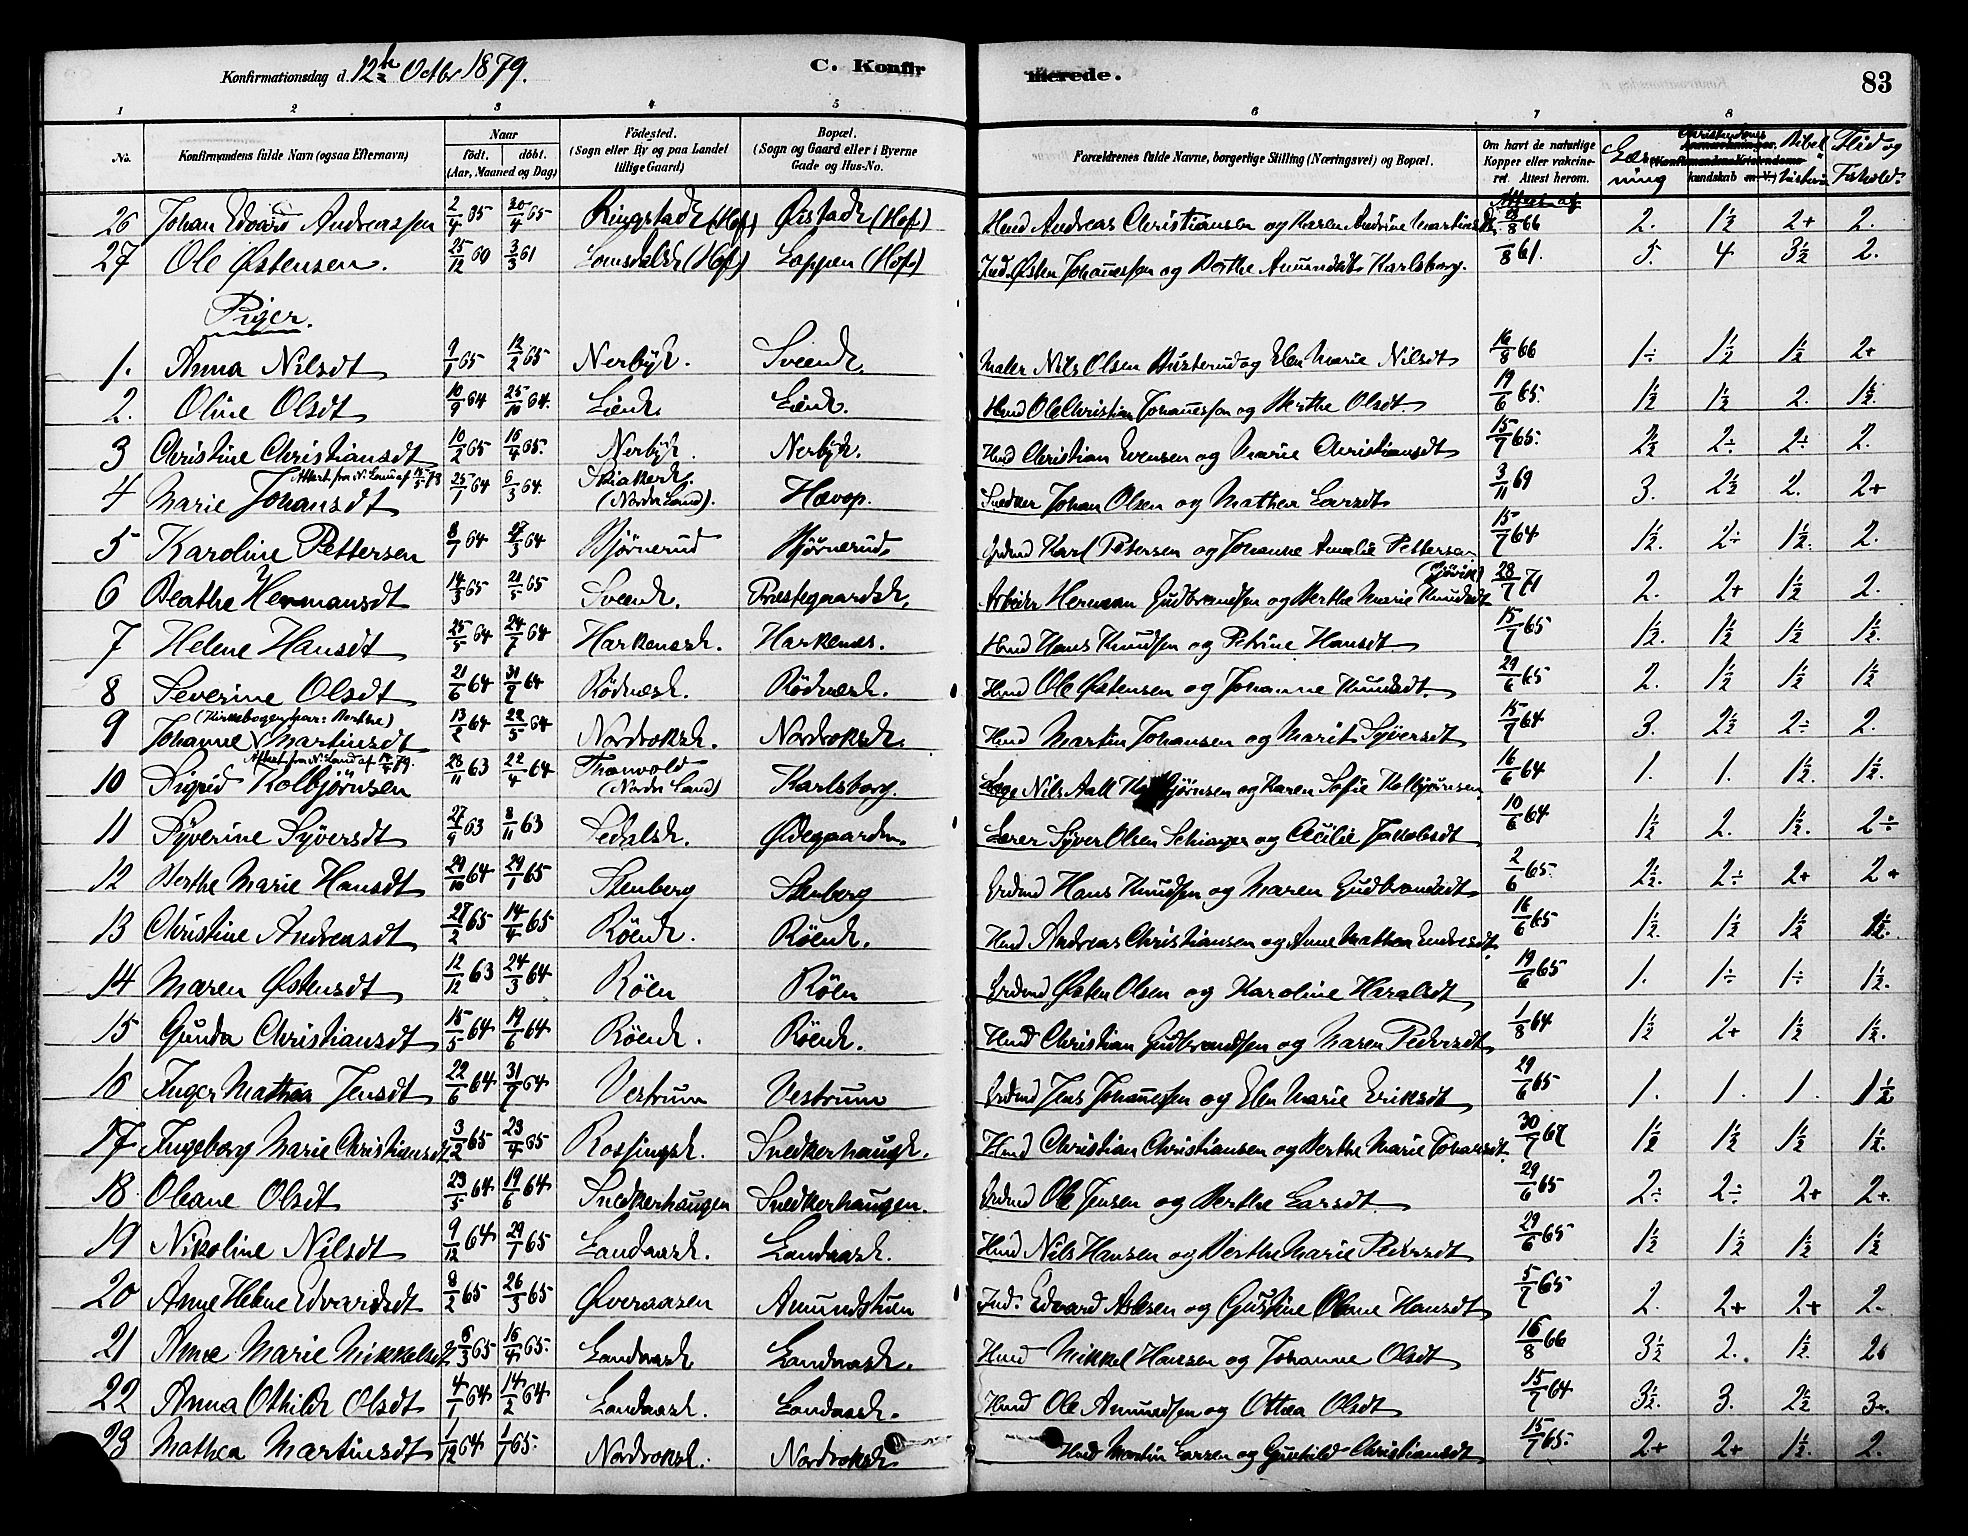 Konfirmationsdag d. 12te Octbr 1879. C. Konfirmerede. 83
1 2 3 4 5 6 7 8
No. Konfirmandens fulde Navn (ogsaa Efternavn) Naar født. døbt. (Aar, Maaned og Dag) Fødested. (Sogn eller By og paa Landet tillige Gaard) Bopæl. (Sogn og Gaard eller i Byerne Gade og Hus-No.) Forældrenes fulde Navne, borgerlige Stilling (Næringsvei) og Bopæl. Om havt de naturlige Kopper eller vakcineret. Attest herom. Læsning Christendomskundskab Bibelhistorie Flid og Forhold.
26 Johan Edvard Andreassen 2/4 65 30/4 65 Ringstadk (Hof) Øistadk (Hof) Hmd Andreas Christiansen og Karen Andrine Martinsdt 13/8 66 2. 1½ 2+ 2.
27 Ole Østensen. 25/12 60 3/3 61 Lomsdalsk (Hof) Loppen (Hof) Ind. Østen Johannessen og Berthe Amundsdt Karlsborg. /8 61. 5. 4. 3½ 2.
Piger.
1. Anna Nilsdt 9/1 65 12/2 65 Nerbyk. Sveenk. Maler Nils Olsen Husterud og Elen Marie Nilsdt 16/8 66 1÷ 1½ 1½ 2+
2. Oline Olsdt 10/9 64 25/10 64. Lienk. Lienk. Hmd Ole Christian Johannessen og Berthe Olsdt. 19/6 65. 1½ 1½ 2. 1½.
3 Christine Christiansdt 10/2 65 16/4 65. Nerbyk. Nerbyk. Hmd Christian Evensen og Marie Christiansdt 15/7 65. 2½ 2÷ 2÷ 2.
4 Marie Johansdt Attest fra N. Land af 15/5 78 25/1 64 6/3 64. Skiakerk. (Nordre Land). Hævop. Snedker Johan Olsen og Mathea Larsdt 3/11 69 3. 2½ 2. 2+
5 Karoline Pettersen 8/7 64 27/3 64 Bjørnerud Bjørnerud. Grdmd Karl Petersen og Johanne Amalie Pettersen 15/7 64 1½. 2÷ 1½. 2.
6 Beathe Hermansdt 14/3 65 21/5 65 Sveenk. Præstegaardsk. Arbeider Herman Gudbrandsen og Berthe Marie Knudsdt (Gjøvik) 28/7 71 2. 2+ 1½ 2.
7 Helene Hansdt 25/5 64 24/7 64 Harkenask. Harkenes. Hmd Hans Knudsen og Petrine Hansdt 15/7 65 1½. 1½ 1½ 1½.
8 Severine Olsdt 21/6 64 31/7 64 Rödnæsk. Rödnæsk. Hmd Ole Østensen og Johanne Knudsdt. 29/6 65 2. 1½ 1½ 1½
9 Johanne Martinsdt (Kirkebogen har: Berthe) 13/2 64 22/5 64 Nordvoksk. Nordvoksk. Hmd Martin Johansen og Marit Syversdt 15/7 64 3. 2½ 2÷ 2.
10 Sigrid Kolbjørnsen Attest fra N. Land af 14/4 79. 28/11 63 22/4 64 Thonvold (Nordre Land) Karlsborg. Læge Nils Aall Kolbjørnsen og Karen Sofie Kolbjørnsen. 16/6 64 1. 1. 1½. 1½.
11 Syverine Syversdt 27/9 63 8/11 63 Sedalsk. Ødegaarden. Lærer Syver Olsen Schiager og Cicilie Jakobsdt 10/6 64 1½ 2. 1½. 2÷
12 Berthe Marie Hansdt 29/10 64 29/1 65 Stenberg Stenberg Grdmd Hans Knudsen og Maren Gudbrandsdt 2/6 65. 2½. 2÷ 2+ 2+
13 Christine Andreasdt 28/2 65 14/4 65 Röenk. Röenk. Hmd Andreas Christiansen og Anne Mathea Endresdt. 16/6 65 1½. 1½ 1½ 1½.
14 Maren Østensdt 12/12 63 24/3 64 Röen Röen Grdmd Østen Olsen og Karoline Haralsdt 19/6 65 1. 1÷ 1÷ 1½.
15 Gunda Christiansdt 15/5 64 19/6 64 Röenk. Röenk. Hmd Christian Gudbrandsen og Maren Pedersdt 1/8 64 1½ 2+ 1½ 1½.
16 Inger Mathea Jensdt 22/6 64 31/7 64 Vestrum Vestrum Grdmd Jens Johannessen og Elen Marie Eriksdt 29/6 65 1. 1. 1. 1½
17 Ingeborg Marie Christiansdt 3/2 65 23/4 65 Rossingsk. Snedkerhaugk. Hmd Christian Christiansen og Berthe Marie Johansdt. 30/7 67 1½ 1½ 1½ 1½.
18 Oleane Olsdt 23/5 64 19/6 64 Snedkerhaugen Snedkerhaugen. Grdmd Ole Jensen og Berthe Larsdt 29/6 65 2÷ 2÷ 2+ 2+.
19 Nikoline Nilsdt 9/12 64 29/1 65 Landaask. Landaask. Hmd Nils Hansen og Berthe Marie Pedersdt 29/6 65 1½ 1½ 1½ 1½
20 Anne Helene Edvardsdt 8/2 65 26/3 65 Øveraasen Amundstuen Ind. Edvard Aslesen og Gustine Oleane Hansdt 5/7 65 2. 2+ 2+ 2.
21 Anne Marie Mikkelsdt 6/3 65 16/4 65. Landaask Landaask. Hmd Mikkel Hansen og Johanne Olsdt 16/8 66 3½ 2. 1½. 2.
22 Anna Othilde Olsdt 4/1 64 14/2 64 Landaask. Landaask. Hmd Ole Amundsen og Ottea Olsdt 15/7 64 3½. 3. 2½ 3+.
23 Mathea Martinsdt 1/12 64 1/1 65. Nordvoksk. Nordvoksk Hmd Martin Larsen og Gunhild Christiansdt 15/7 65. 2+ 2+ 1½. 2.